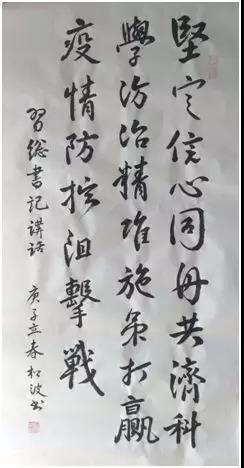 堅定信心同舟共濟科
學防治精准施策打贏
疫情防控阻擊戰
習總書記講話 庚子立春松波书